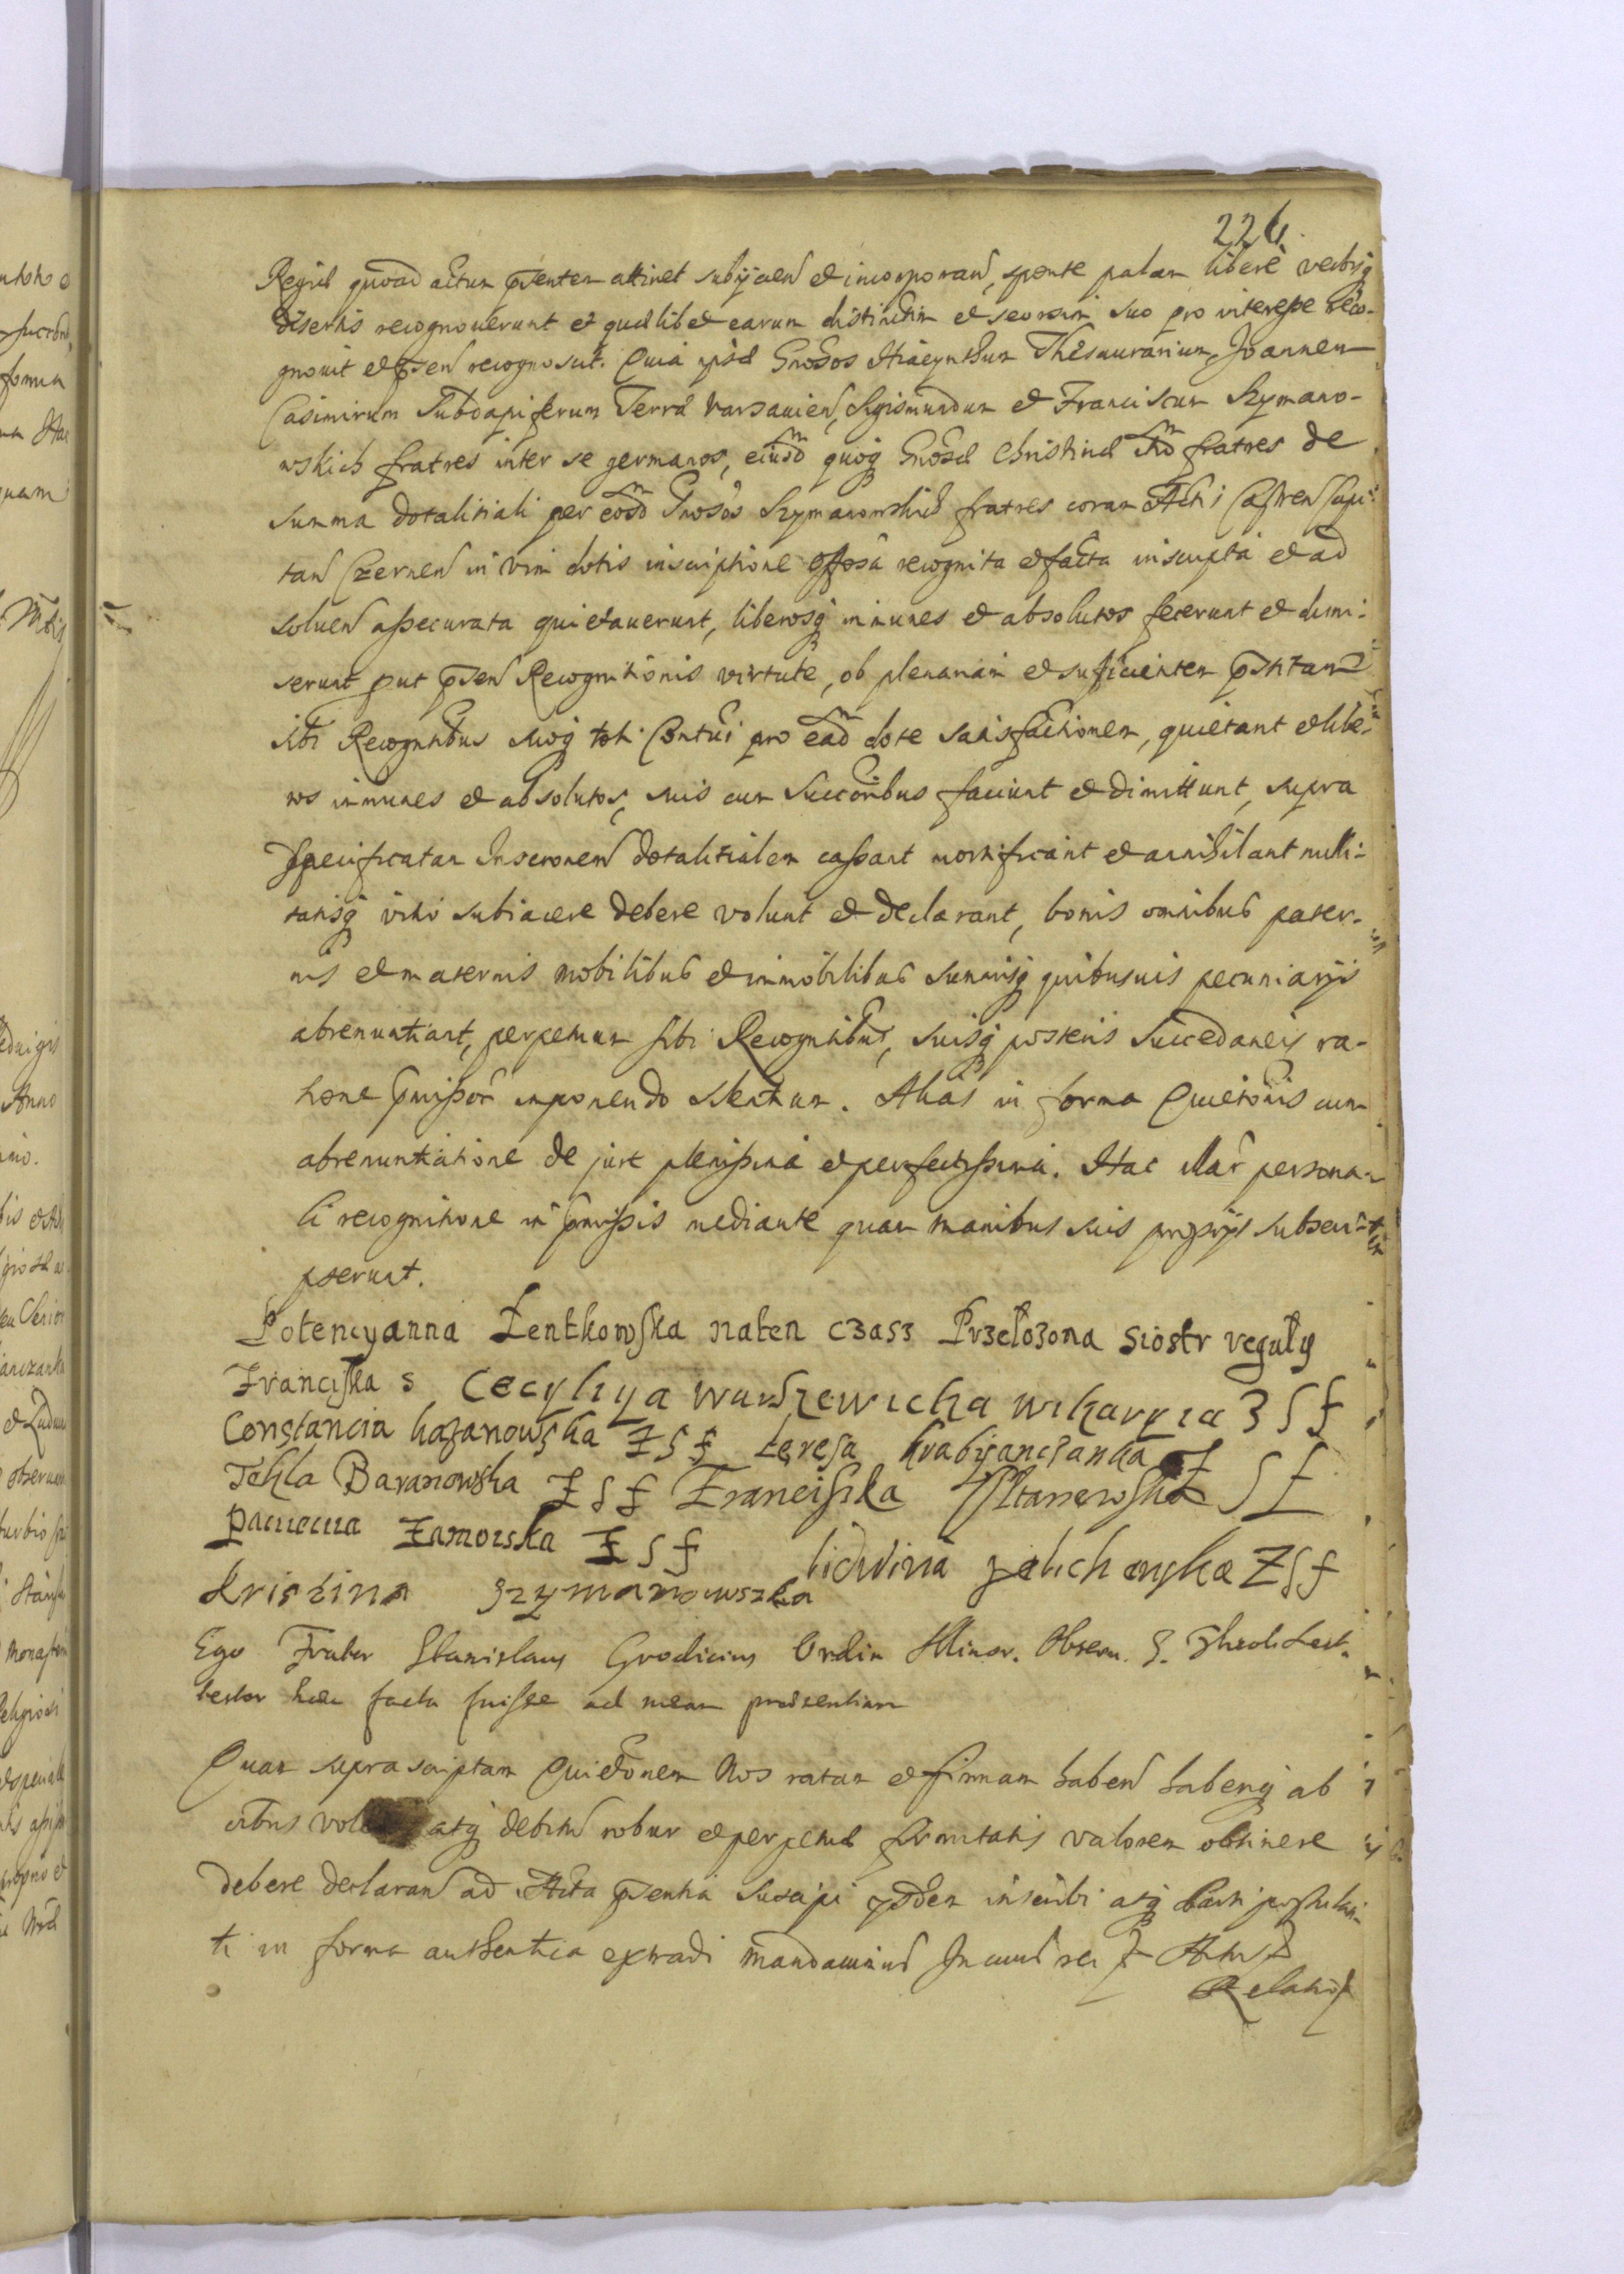 226.
Regni quoad actum pntem attinet subijcien et incorporan, sponte palam libere verbisq
disertis recognoverunt et quaelibet earum distinctim et seorsim suo pro interesse reco-
gnovit et pnsen recognoscit. Quia ipsae Gnosos Hiacynthum Thesaurarium, Joannem
Casimirum Subdapiferum Terrae Varsavien, Sigismundum et Franciscum Szymano-
wskich fratres inter se germanos, eiusd quoq Gnosae Christinae fratres de
summa dotalitiali per eosd Gnosos Szymanowskie fratres coram Actis Castren Capi-
tan Czernen in vim dotis inscriptione recognita et facta inscripta et ad
solven assecurata quietaverunt, liberosq immunes et absolutos fecerunt et dimi-
serunt put pnsen Recognitionis virtute, ob plenariam et sufficientem pstitam
sibi Recogntibus suoq toti Contui pro ead dote satisfactionem, quietant et libe-
ros immunes et absolutos, suis cum Succoribus faciunt et dimittunt, supra
specificatam Inscronem dotalitialem cassant mortificant et annihilant nulli-
tatisq vitio subiacere debere volunt et declarant, bonis omnibus pater-
nis et maternis mobilibus et immobilibus summisq quibusuis pecuniarijs
abrenuntiant, perpetuum sibi Recogntibus, suisq posteris Succedaneis ra-
tione pmissor imponendo silentium. Alias in forma Quietonis cum
abrenuntiatione de jure plenissima et perfectissima. Hac illar persona-
li recognitione in pmissis mediante quam manibus suis proprijs subscri-
pserunt.
Potencyanna Zentkowska naten czasz Przełozona siostr reguły
Franciska s Cecyliya wikaryia 3 S f
Constancia kazanowska Z S f teresa hrabijanczanka Z S f
Tekla Baranowska Z S f Franciszka
Zamoiska Z S f lidwina Z S f
kristina szymanowszka
Ego Frater Stanislaus Grodicius Ordin Minor. Observ. S. Theol: Lect.
testor haec facta fuisse ad meam praesentiam
Quam suprascriptam Quietonem Nos ratam et firmam haben haberiq ab
oibus atq debitu robur et perpetuae firmitatis valorem obtinere
debere declaran ad Acta pntia suscipi inscribi atq Parti postulan-
ti in forma authentica extradi mandavimus In cuius rei f Actu f
Relatio f